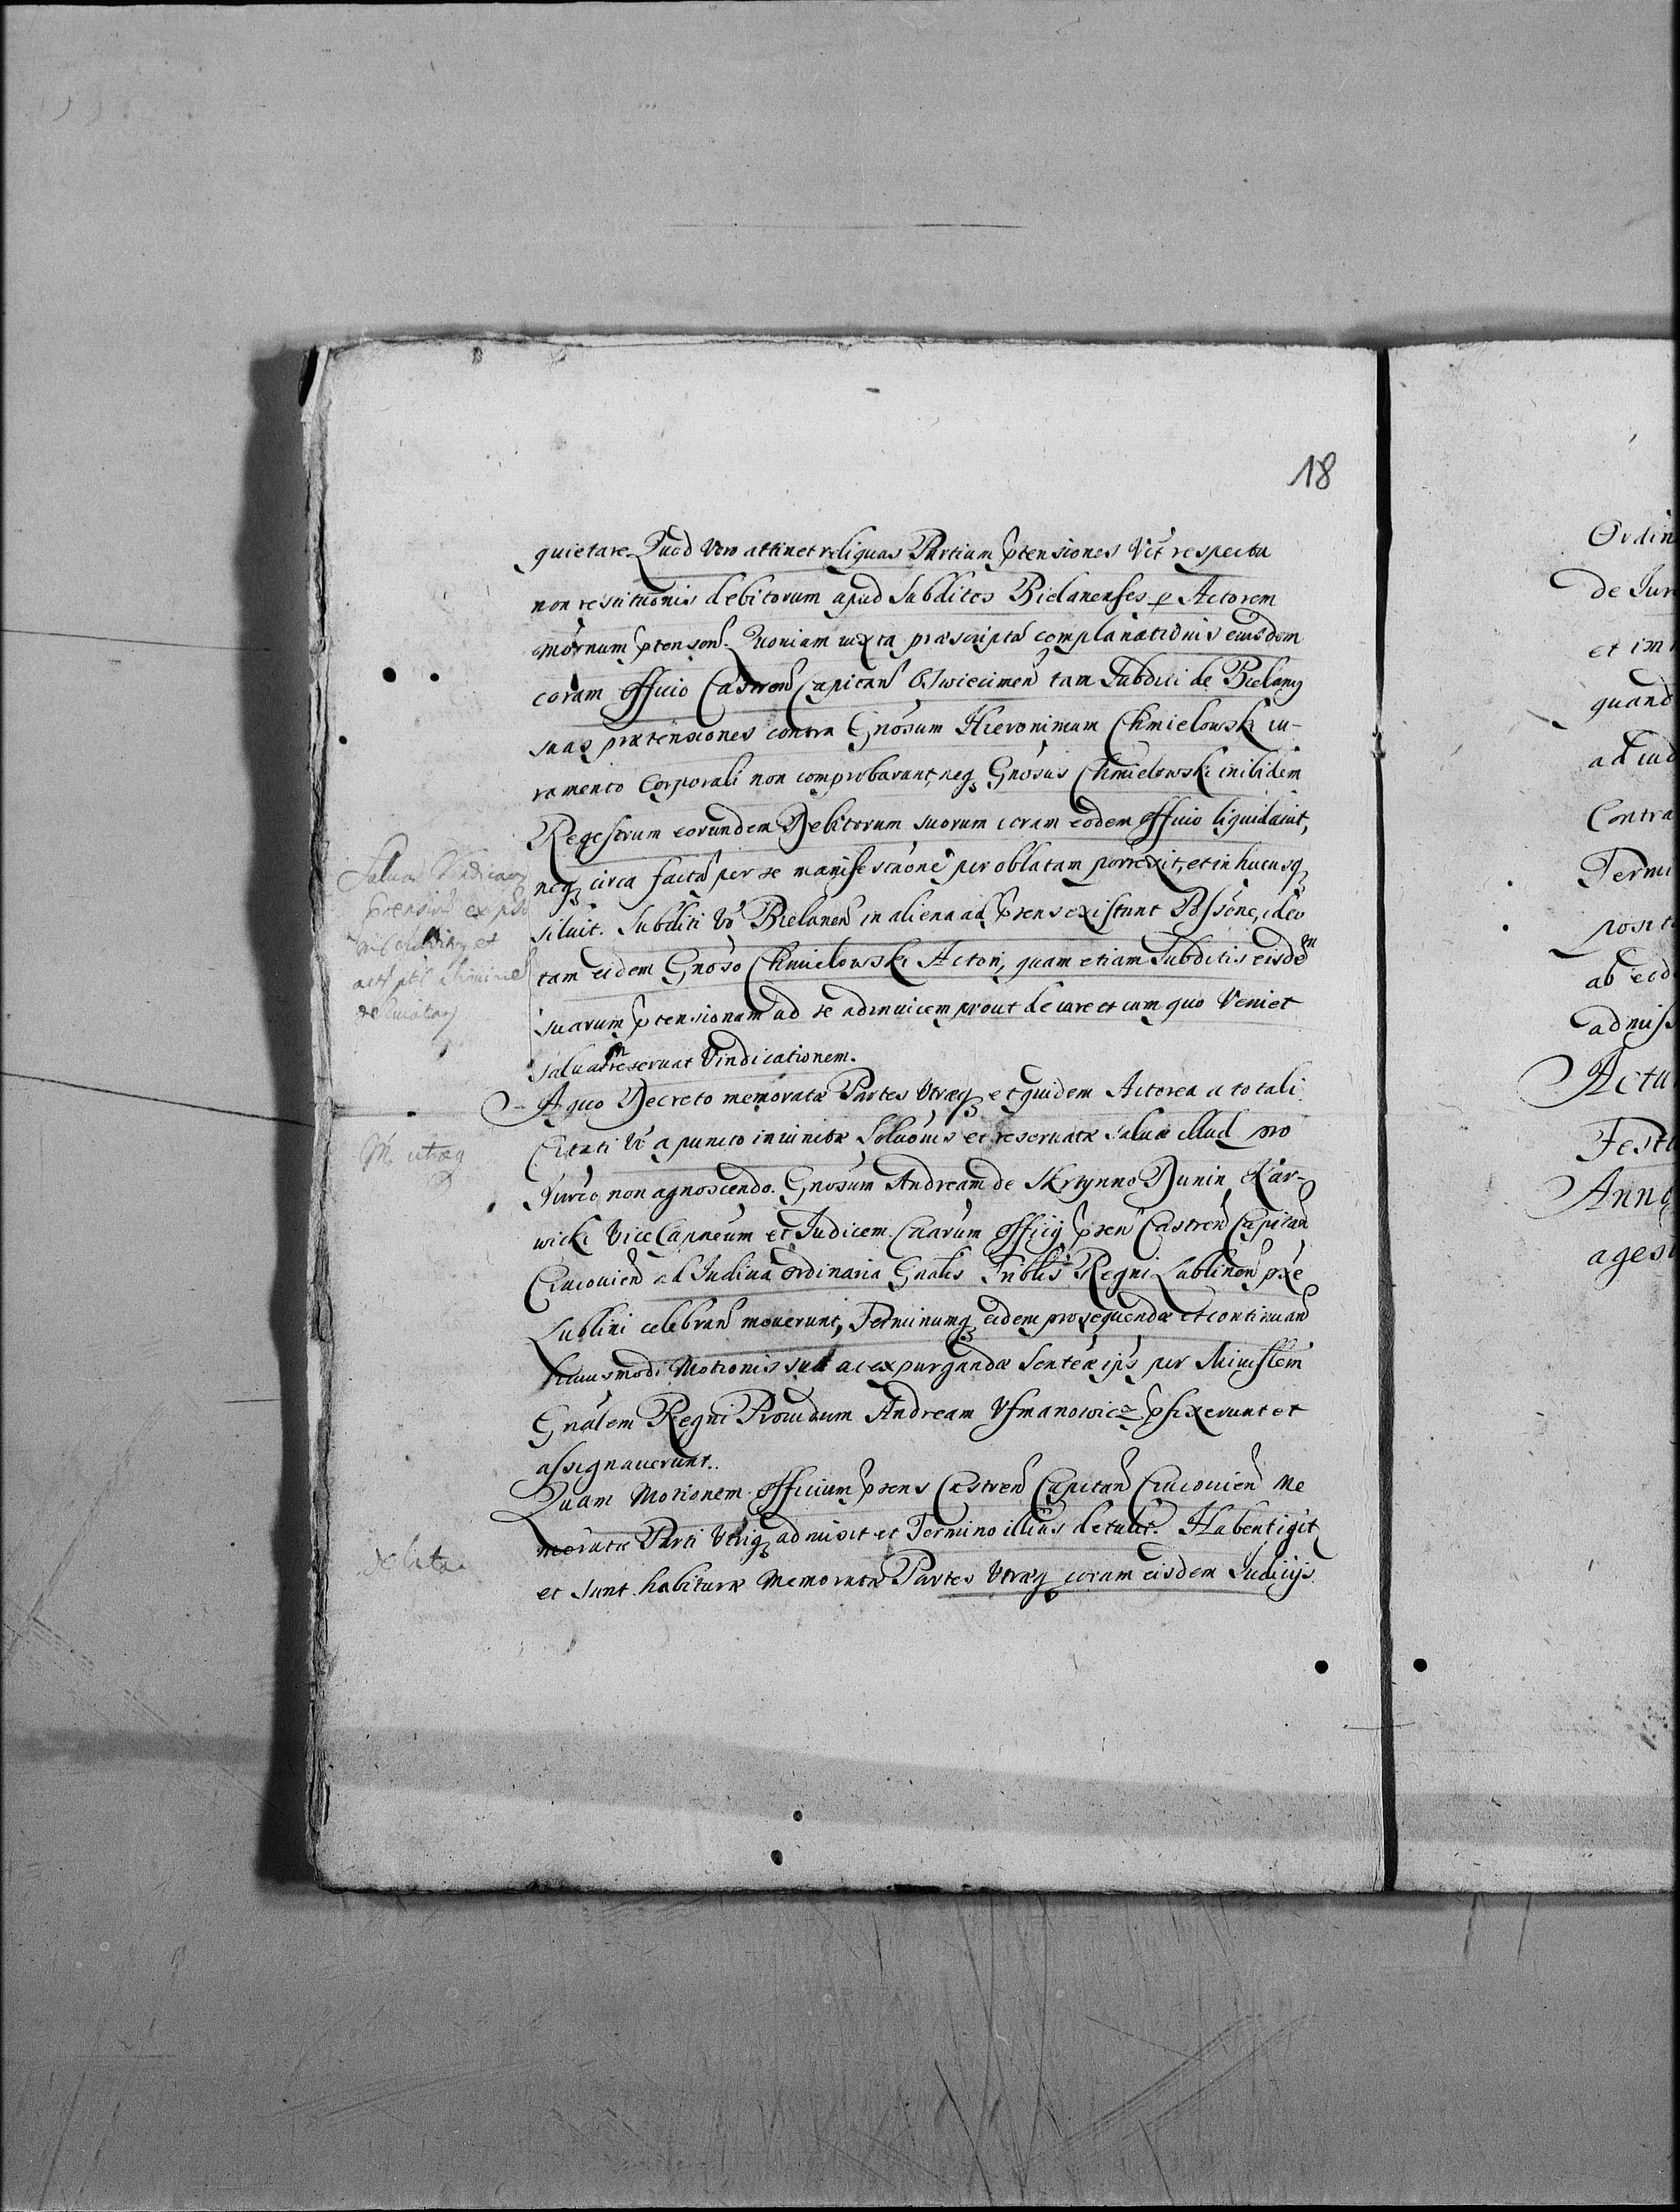 18
quietare. Quod Vero attinet reliquas Partium ptensiones Vĩt respectu
non restitutionis debitorum apud Subditos Bielanenses p Actorem
Quoniam iuxta præscripta complanationis eiusdem
coram Officio Castren Capitan Oswiecimen tam Subditi de Bielany
suas prætensiones contra Gnosum Hieronimum Chmielowski iu-
ramento Corporali non comprobarunt, neq Gnosus Chmielowski inibidem
Regestrum eorundem Debitorum suorum coram eodem Officio liquidauit,
neq circa facta per se manifestãone per oblatam porrexit, et in hucusq
siluit. Subditi Vo Bielanen in aliena ad prens existunt Possone, ideo
tam eidem Gnoso Chmielowski Actori, quam etiam Subditis eisdem
suarum ptensionum ad se adinuicem prout de iure et cum quo Veniet
saluam reseruat Vindicationem.
A quo Decreto memoratæ Partes Vtræq et quidem Actorea a totali
Citati Vo a puncto iniunctæ Soluonis et reseruatæ saluæ illud pro
Iurco non agnoscendo. Gnosum Andream de Skrzynno Dunin Kar-
wicki Vice Capneum et Judicem Cãarum Officij prsen Castren Capitan
Cracouien ad Iudicia Ordinaria Gnalis Triblis Regni Lublinen pxe
Lublini celebran mouerunt, Terminumq eidem prosequendæ et continuand
huiusmodi Motionis suæ ac expurgandæ Sentẽæ ips per Ministlem
Gnalem Regni Prouidum Andream Vsmanowicz pfixerunt et
assignauerunt.
Quam Motionem Officium prens Castren Capitan Cracouien Me
moratæ Parti Vtriq admisit et Termino illius detulit. Habent igit
et sunt habituræ Memoratæ Partes Vtræq coram eisdem Iudicijs
M utræq
delata
Ordin
de Iur
et im
quand
ad iud
Contra
Termi
posit
ab eid
admiss
Actu
Festu
Anno
ages